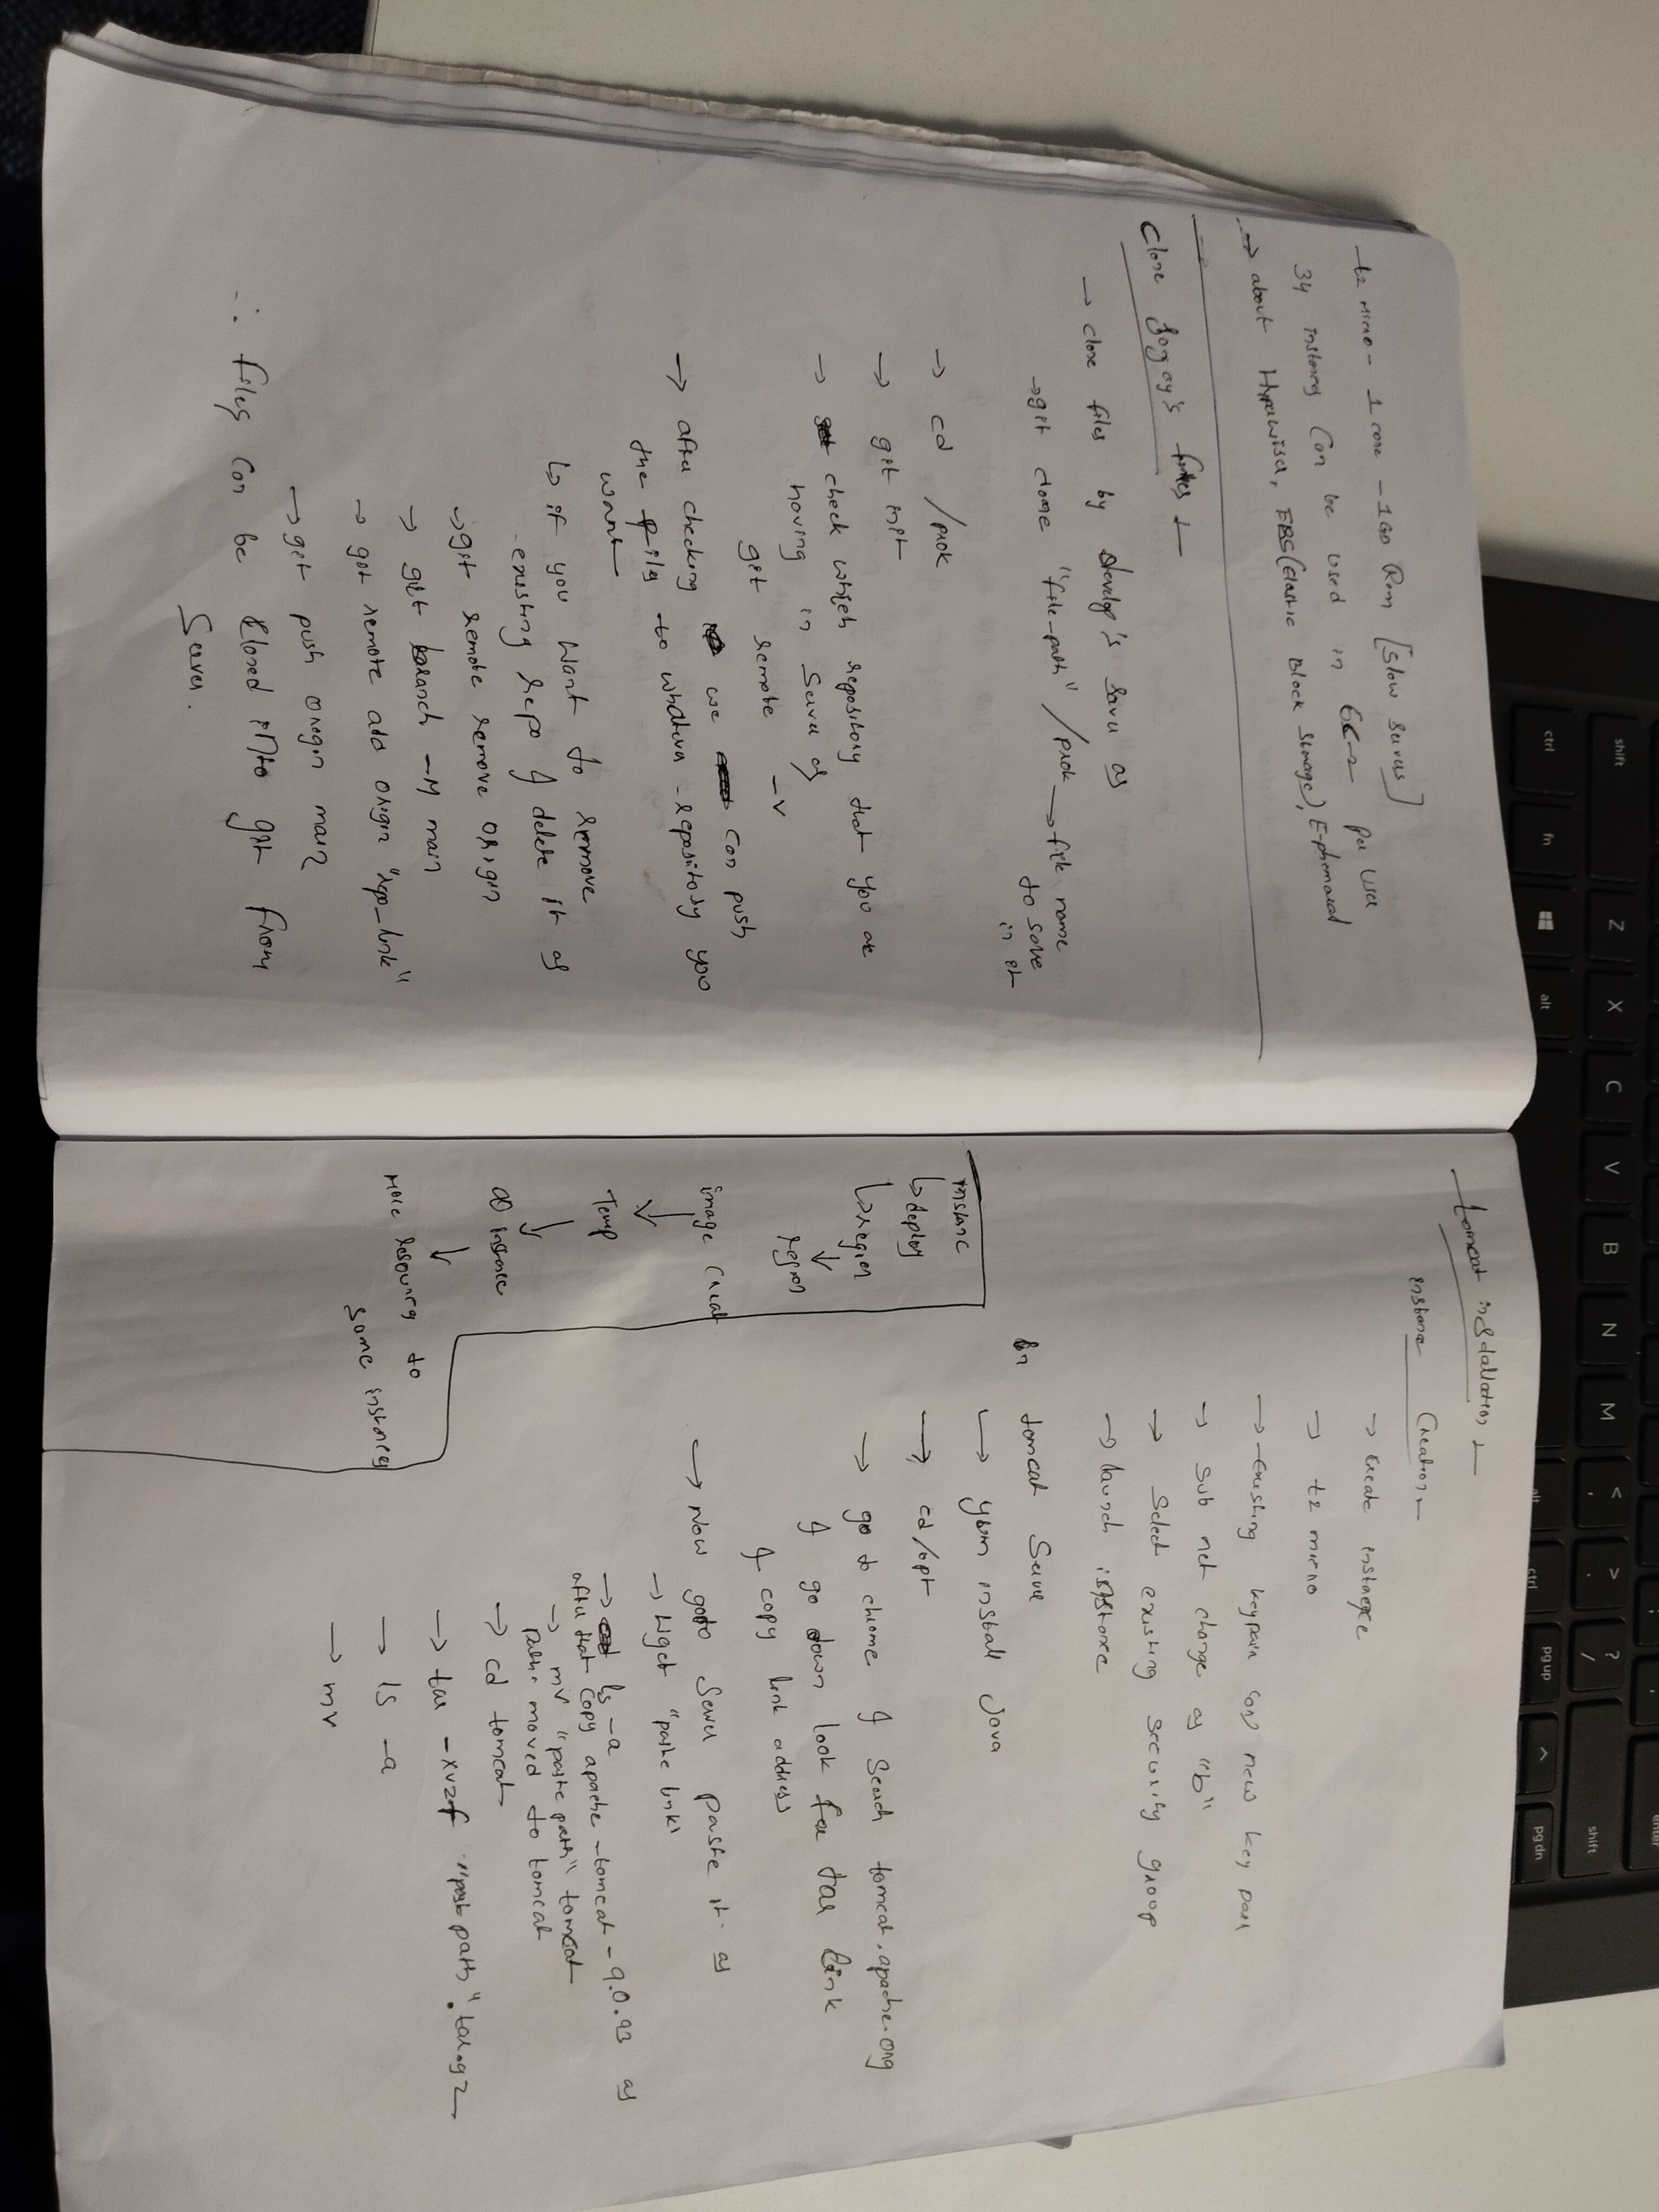 t2 micro - 1 core - 1GB Ram [slow servers]
34 instances can be used in EC-2 per user
→ about Hyperwiser, EBS(Elastic Block Storage), E-phemaral
Clone files :-
→ clone files by develop's server as
→ git clone "file-path" /prok → file name
to save
in it
→ cd /prok
→ git init
→ check which repository that you are
having in server as
git remote -v
→ after checking we can push
the files to whatever repository you
want
↳ if you want to remove
existing repo & delete it as
→ git remote remove origin
→ git branch -M main
→ git remote add origin "repo_link"
→ git push origin main
∴ files can be cloned into git from
Server.
tomcat installation :-
instance Creation :-
→ create instance
→ t2 micro
→ existing keypair (or) new key pair
→ sub net change as "b"
→ Select existing security group
→ launch instance
In tomcat Server
→ yum install java
→ cd /opt
→ go to chrome & search tomcat.apache.org
& go down look for tar link
& copy link address
→ Now goto server paste it as
→ Wget "paste link"
→ ls -a
after that copy apache-tomcat-9.0.93 as
→ mv "paste path" tomcat
path moved to tomcat
→ cd tomcat
→ tar -xvzf "past path".tar.gz
→ ls -a
→ mv
instanc
↳ deploy
↳ region
↓
region
image creat
↓
Temp
↓
instance
↓
More resources to
same instances